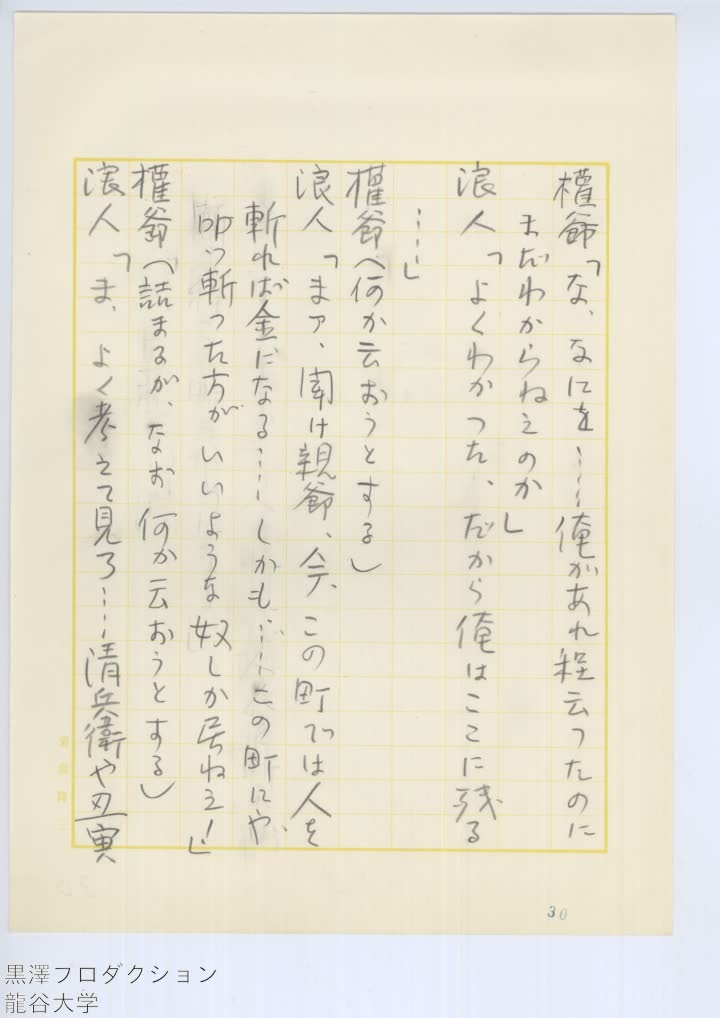 權爺「な、なにを……俺があれ程云ったのに
まだわからねえのか」
浪人「よくわかった、だから俺はここに残る
……」
權爺(何か云おうとする)
浪人「まァ、聞け親爺、今、この町では人を
斬れば金になる……しかも……この町にや、
叩ッ斬った方がいいような奴しか居ねえ！」
權爺(詰まるが、なお何か云おうとする)
浪人「ま、よく考えて見ろ……清兵衛や丑寅
30
黒澤プロダクション
龍谷大学